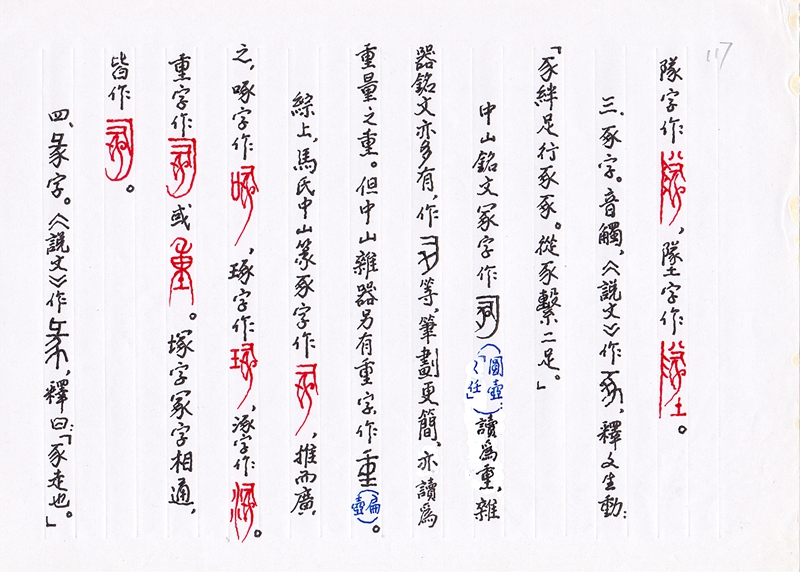 117
隊字作，墜字作。
三、豖字。音觸，《說文》作豖，釋文生動：
「豕絆足行豖豖。從豕繫二足。」
中山銘文冢字作（圓壺「冢任」）讀爲重，雜
器銘文亦多有，作等，筆劃更簡，亦讀爲
重量之重。但中山雜器另有重字，作（扁壺）。
綜上，馬氏中山篆豖字作，推而廣
之，啄字作，琢字作，涿字作。
重字作或。塚字冢字相通，
皆作。
四、彖字。《說文》作彖，釋曰：「豕走也。」